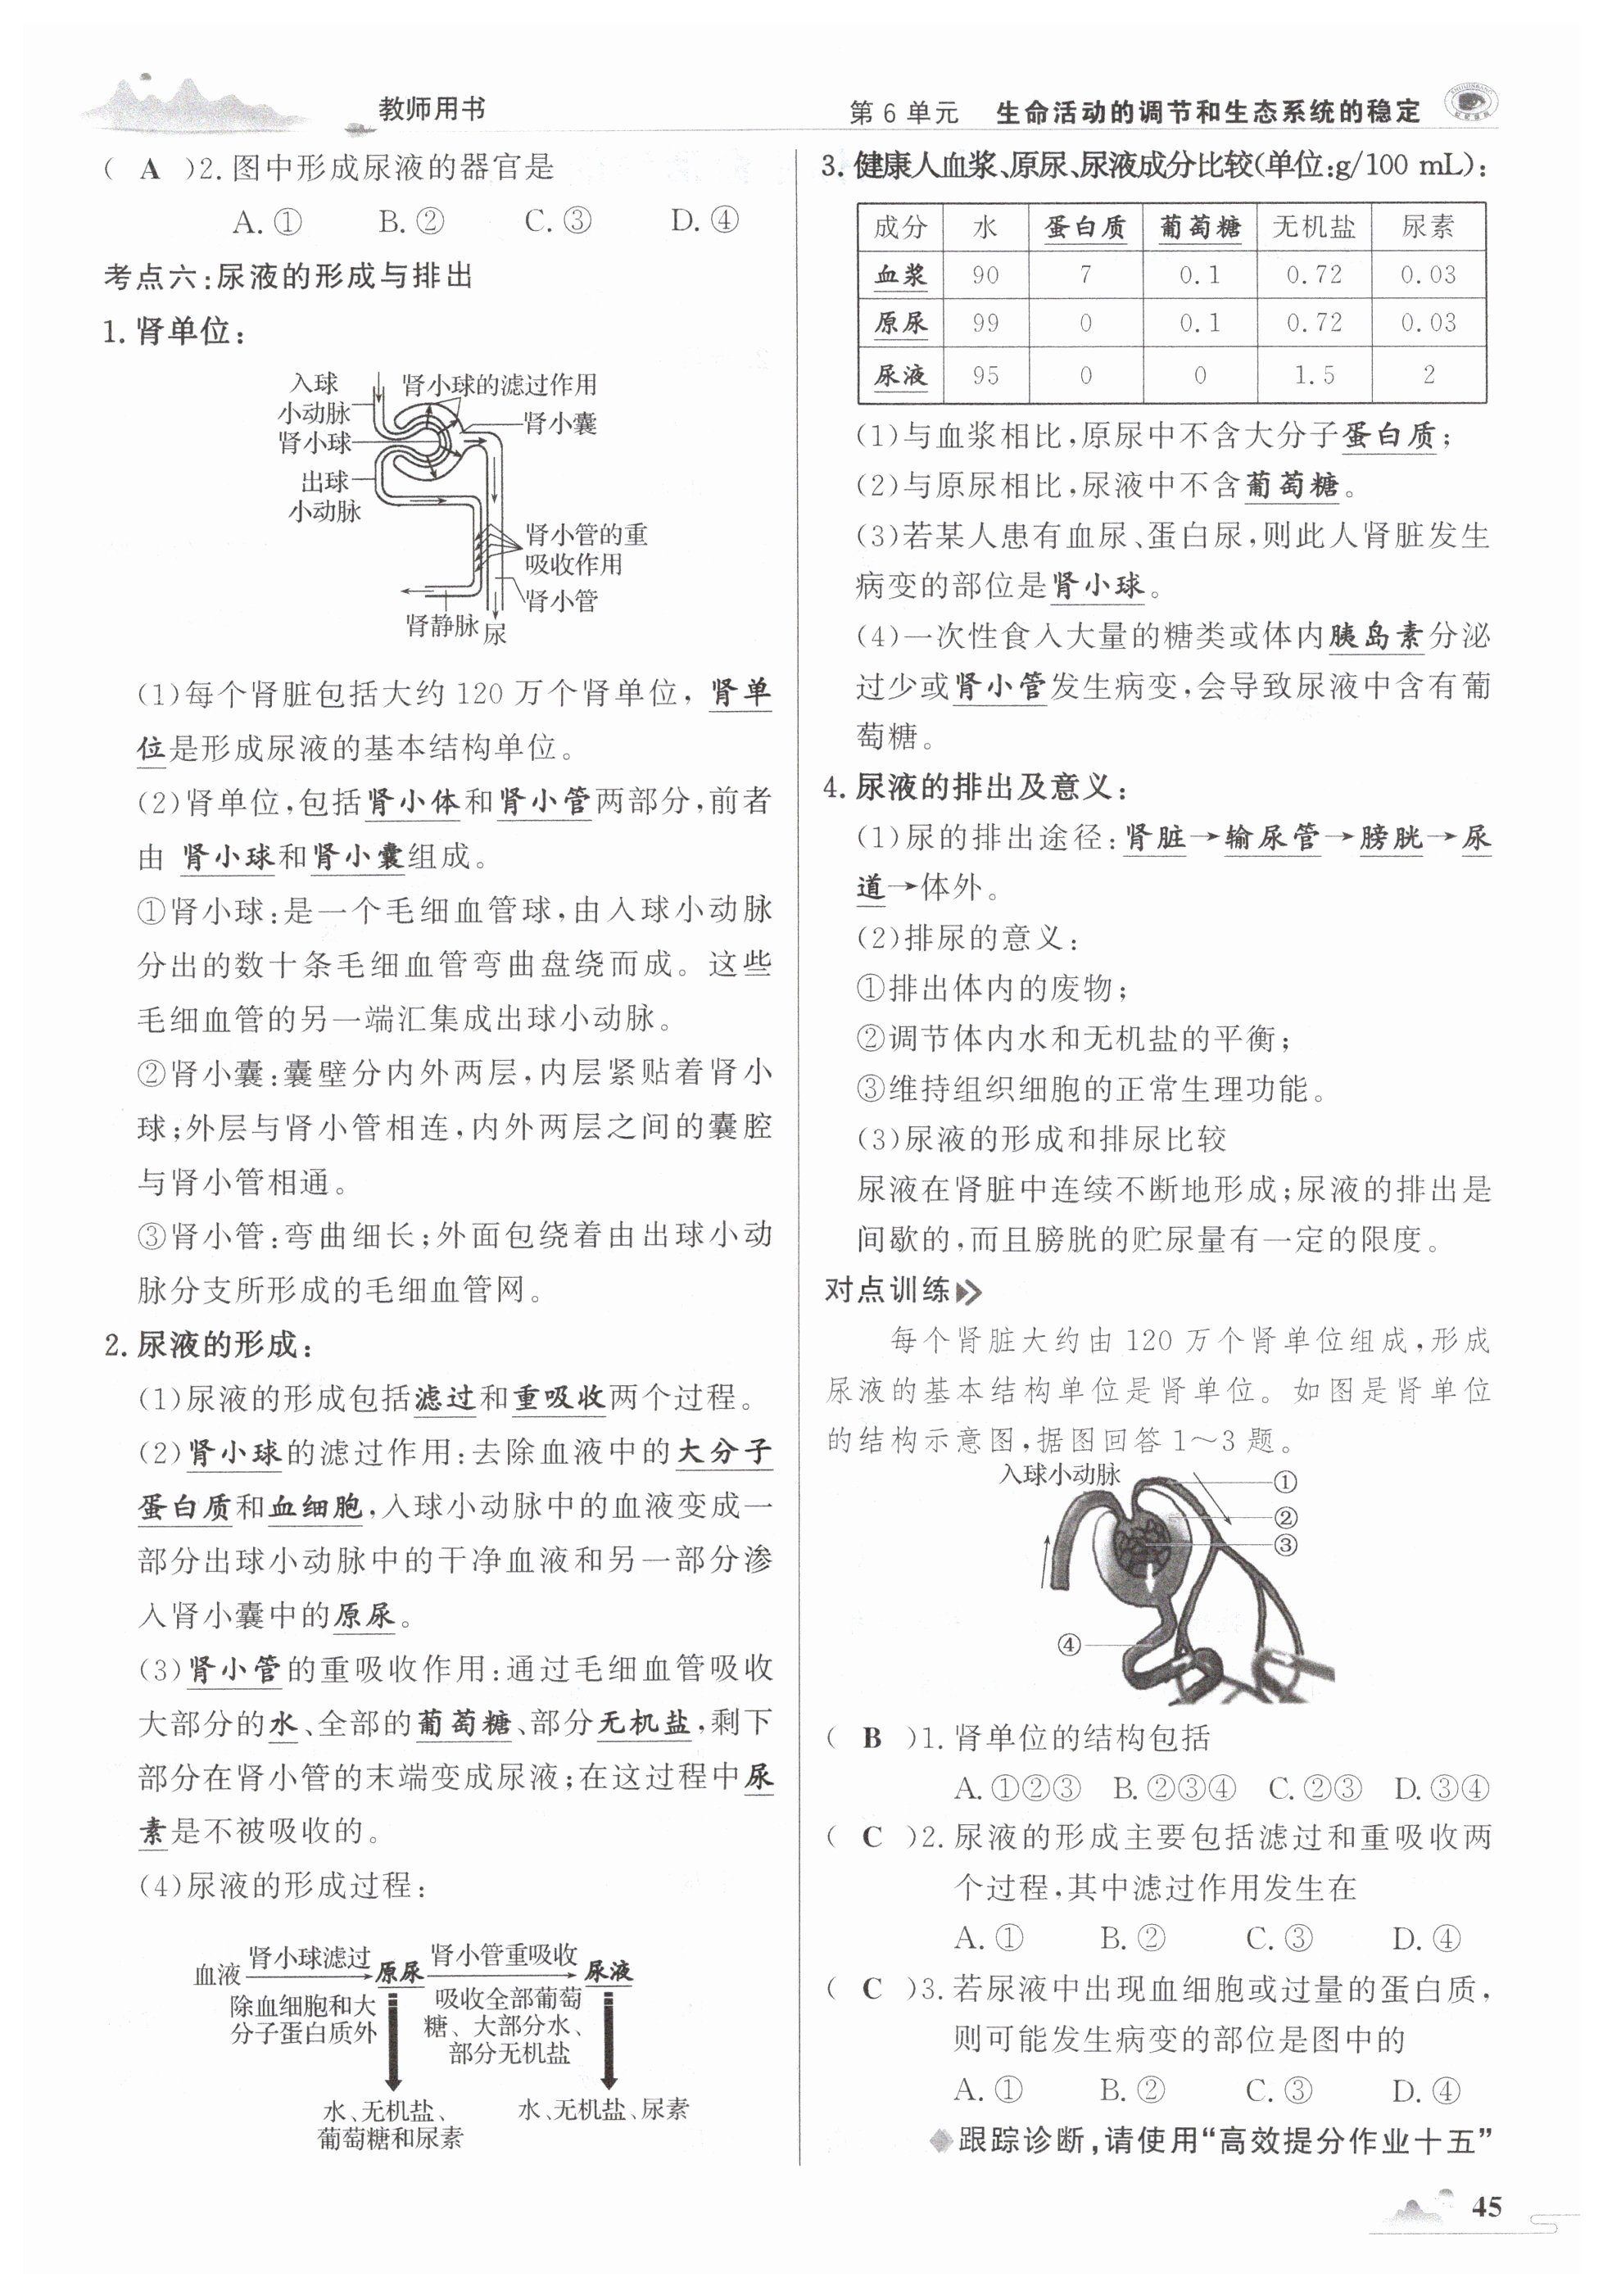 教师用书
第 6 单元 生命活动的调节和生态系统的稳定
( A )2. 图中形成尿液的器官是
A. ① B. ② C. ③ D. ④
考点六:尿液的形成与排出
1. 肾单位:
入球
小动脉
肾小球的滤过作用
肾小囊
肾小球
出球
小动脉
肾小管的重
吸收作用
肾小管
肾静脉
尿
(1)每个肾脏包括大约 120 万个肾单位, 肾单
位是形成尿液的基本结构单位。
(2)肾单位,包括肾小体和肾小管两部分,前者
由 肾小球和肾小囊组成。
①肾小球:是一个毛细血管球,由入球小动脉
分出的数十条毛细血管弯曲盘绕而成。这些
毛细血管的另一端汇集成出球小动脉。
②肾小囊:囊壁分内外两层,内层紧贴着肾小
球;外层与肾小管相连,内外两层之间的囊腔
与肾小管相通。
③肾小管:弯曲细长;外面包绕着由出球小动
脉分支所形成的毛细血管网。
2. 尿液的形成:
(1)尿液的形成包括滤过和重吸收两个过程。
(2)肾小球的滤过作用:去除血液中的大分子
蛋白质和血细胞,入球小动脉中的血液变成一
部分出球小动脉中的干净血液和另一部分渗
入肾小囊中的原尿。
(3)肾小管的重吸收作用:通过毛细血管吸收
大部分的水、全部的葡萄糖、部分无机盐,剩下
部分在肾小管的末端变成尿液;在这过程中尿
素是不被吸收的。
(4)尿液的形成过程:
血液 肾小球滤过 → 原尿 肾小管重吸收 → 尿液
除血细胞和大
分子蛋白质外
吸收全部葡萄
糖、大部分水、
部分无机盐
水、无机盐、
葡萄糖和尿素
水、无机盐、尿素
3. 健康人血浆、原尿、尿液成分比较(单位:g/100 mL):
成分 水 蛋白质 葡萄糖 无机盐 尿素
血浆 90 7 0.1 0.72 0.03
原尿 99 0 0.1 0.72 0.03
尿液 95 0 0 1.5 2
(1)与血浆相比,原尿中不含大分子蛋白质;
(2)与原尿相比,尿液中不含葡萄糖。
(3)若某人患有血尿、蛋白尿,则此人肾脏发生
病变的部位是肾小球。
(4)一次性食入大量的糖类或体内胰岛素分泌
过少或肾小管发生病变,会导致尿液中含有葡
萄糖。
4. 尿液的排出及意义:
(1)尿的排出途径:肾脏→输尿管→膀胱→尿
道→体外。
(2)排尿的意义:
①排出体内的废物;
②调节体内水和无机盐的平衡;
③维持组织细胞的正常生理功能。
(3)尿液的形成和排尿比较
尿液在肾脏中连续不断地形成;尿液的排出是
间歇的,而且膀胱的贮尿量有一定的限度。
对点训练
每个肾脏大约由 120 万个肾单位组成,形成
尿液的基本结构单位是肾单位。如图是肾单位
的结构示意图,据图回答 1～3 题。
入球小动脉
①
②
③
④
( B )1. 肾单位的结构包括
A. ①②③ B. ②③④ C. ②③ D. ③④
( C )2. 尿液的形成主要包括滤过和重吸收两
个过程,其中滤过作用发生在
A. ① B. ② C. ③ D. ④
( C )3. 若尿液中出现血细胞或过量的蛋白质,
则可能发生病变的部位是图中的
A. ① B. ② C. ③ D. ④
◆跟踪诊断,请使用“高效提分作业十五”
45